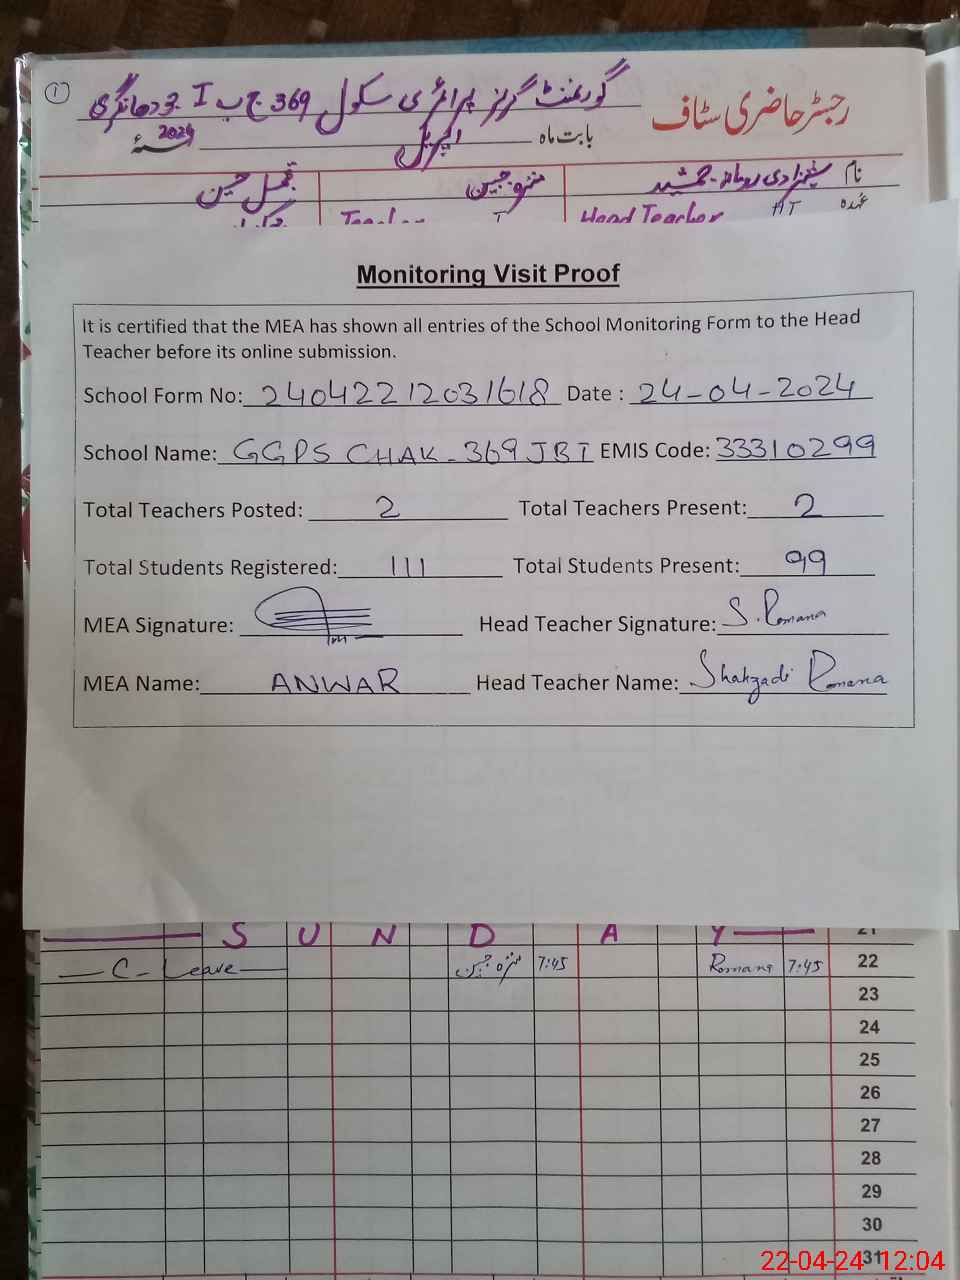 1
گورنمنٹ گرلز پرائمری سکول 369 ج ب I
رجسٹر حاضری سٹاف
بابت ماہ اپریل 2024
نام شہزادی رومانہ جمشید
عہدہ HT
Head Teacher
T
Teacher
Monitoring Visit Proof
It is certified that the MEA has shown all entries of the School Monitoring Form to the Head
Teacher before its online submission.
School Form No: 24042212031618 Date : 24-04-2024
School Name: GGPS CHAK-369JBI EMIS Code: 33310299
Total Teachers Posted: 2 Total Teachers Present: 2
Total Students Registered: 111 Total Students Present: 99
MEA Signature: Head Teacher Signature: S. Romana
MEA Name: ANWAR Head Teacher Name: Shahzadi Romana
S U N D A Y 21
C-Leave 7:45 Romana 7:45 22
23
24
25
26
27
28
29
30
31
22-04-24 12:04